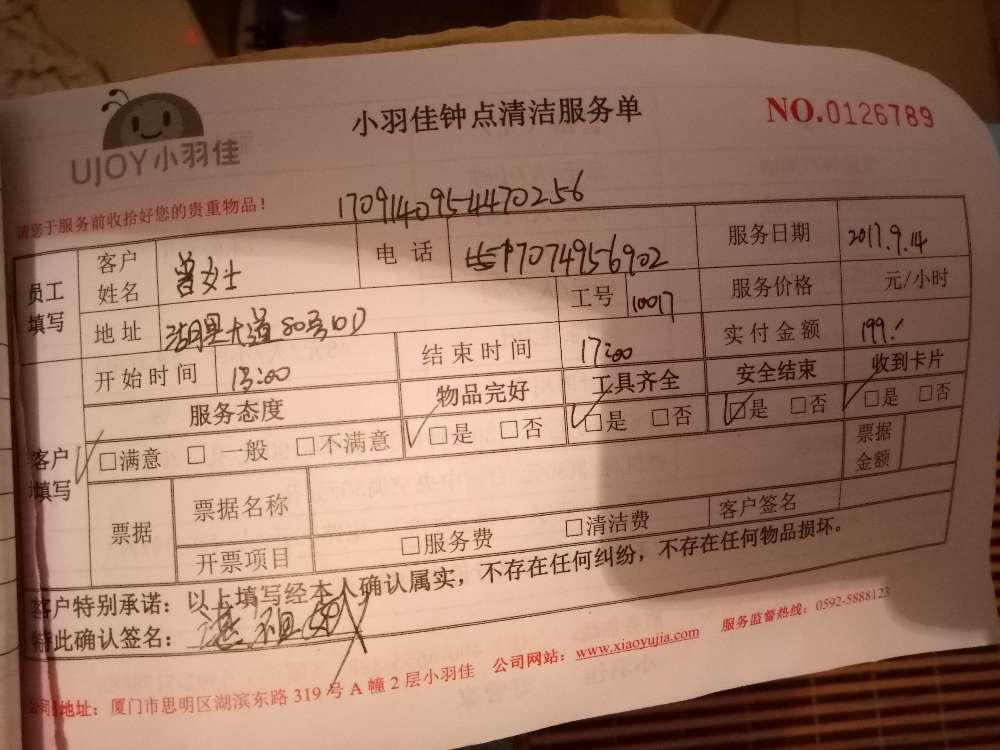 UJOY小羽佳
小羽佳钟点清洁服务单
NO.0126789
请您于服务前收拾好您的贵重物品！
170914095447 0256
员工填写 客户姓名 曾女士 电话 17074956902 服务日期 2017.9.14
地址 湖里大道80号10D 工号 10017 服务价格 元/小时
开始时间 13:00 结束时间 17:00 实付金额 199.
客户填写 服务态度 物品完好 工具齐全 安全结束 收到卡片
□满意 □一般 □不满意 □是 □否 □是 □否 □是 □否 □是 □否
票据 票据名称 票据金额
开票项目 □服务费 □清洁费 客户签名
客户特别承诺：以上填写经本人确认属实，不存在任何纠纷，不存在任何物品损坏。
特此确认签名：
服务监督热线：0592-5888123
公司地址：厦门市思明区湖滨东路319号A幢2层小羽佳 公司网站：www.xiaoyujia.com